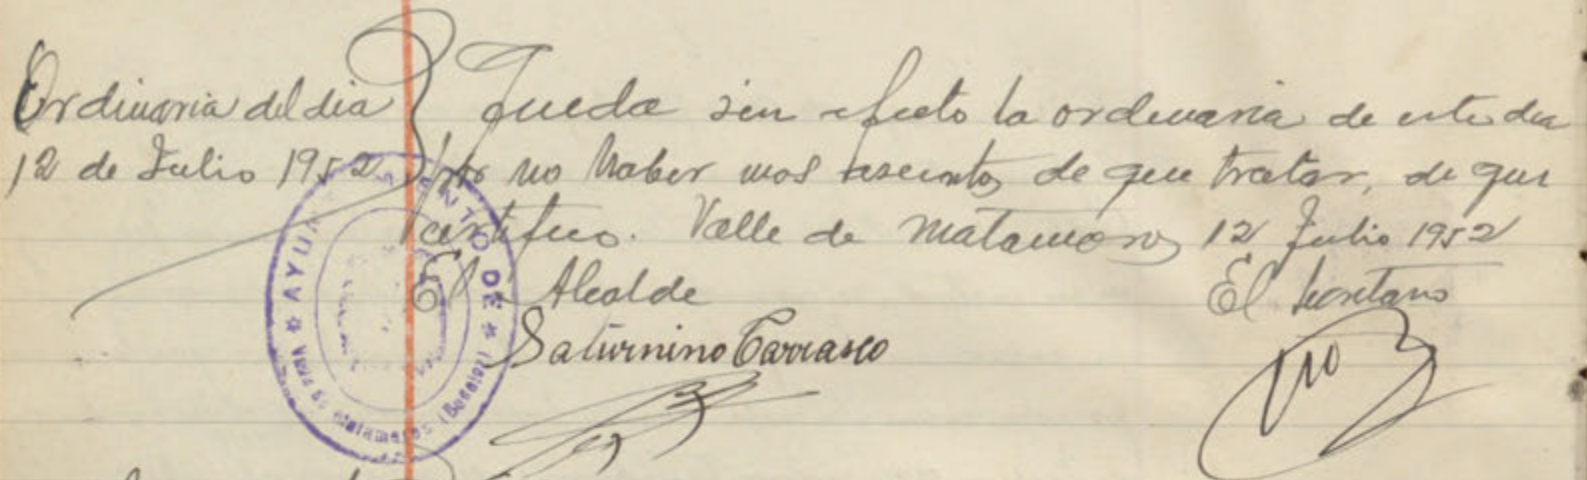 Ordinaria del dia
12 de Julio 1952
Queda sin efecto la ordinaria de este dia
por no haber mas asuntos de que tratar, de que
certifico. Valle de Matamoros 12 Julio 1952
El Alcalde
El Secretario
Saturnino Carrasco
AYUNTAMIENTO DE
Valle de Matamoros (Badajoz)